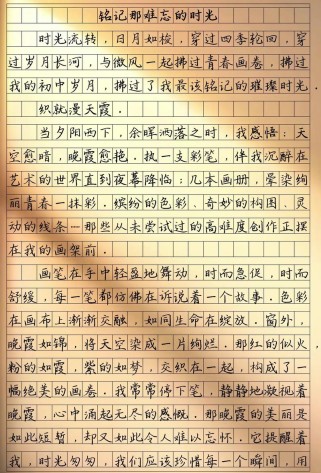 铭记那难忘的时光
时光流转，日月如梭，穿过四季轮回，穿
过岁月长河，与微风一起拂过青春画卷，拂过
我的初中岁月，拂过了我最该铭记的璀璨时光．
织就漫天霞．
当夕阳西下，余晖洒落之时，我感悟：天
空愈暗，晚霞愈艳．执一支彩笔，伴我沉醉在
艺术的世界直到夜幕降临；几本画册，晕染绚
丽青春一抹彩．缤纷的色彩、奇妙的构图、灵
动的线条…那些从未尝试过的高难度创作正摆
在我的画架前．
画笔在手中轻盈地舞动，时而急促，时而
舒缓，每一笔都仿佛在诉说着一个故事．色彩
在画布上渐渐交融，如同生命在绽放．窗外，
晚霞如锦，将天空染成一片绚烂．那红的似火，
粉的如霞，紫的如梦，交织在一起，构成了一
幅绝美的画卷．我常常停下笔，静静地凝视着
晚霞，心中涌起无尽的感慨．那晚霞的美丽是
如此短暂，却又如此令人难以忘怀．它提醒着
我，时光匆匆，我们应该珍惜每一个瞬间，用